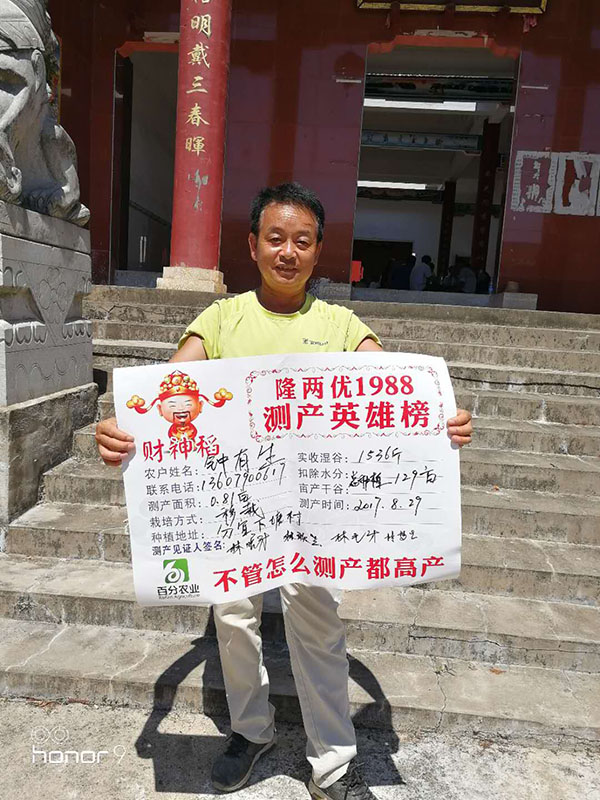 明戴三春暉
隆两优1988
测产英雄榜
财神稻
农户姓名：钟有生
联系电话：13607900617
测产面积：0.8亩
栽培方式：移栽
种植地址：分宜下坡村
测产见证人签名：
实收湿谷：1536斤
扣除水分：
129亩
亩产干谷：
测产时间：2017.8.29
百分农业
不管怎么测产都高产
honor 9